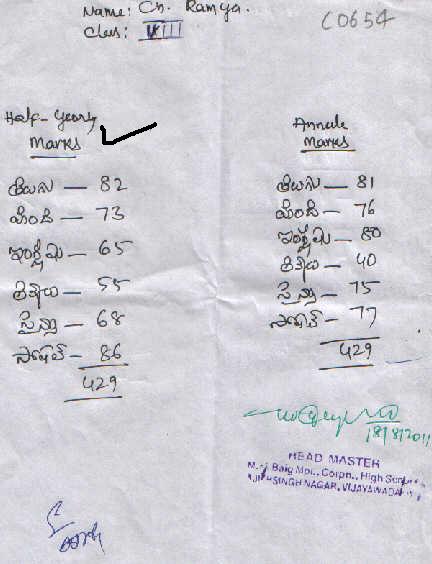 Name: Ch. Ramya.
Class: VIII
C0654
Half-Yearly
Marks
తెలుగు — 82
హిందీ — 73
ఇంగ్లీషు — 65
లెక్కలు — 55
సైన్సు — 68
సోషల్ — 86
429
Annule
Marks
తెలుగు — 81
హిందీ — 76
ఇంగ్లీషు — 80
లెక్కలు — 40
సైన్సు — 75
సోషల్ — 77
429
18/8/2011
HEAD MASTER
Baig Mpl., Corpn., High School
SINGH NAGAR, VIJAYAWADA